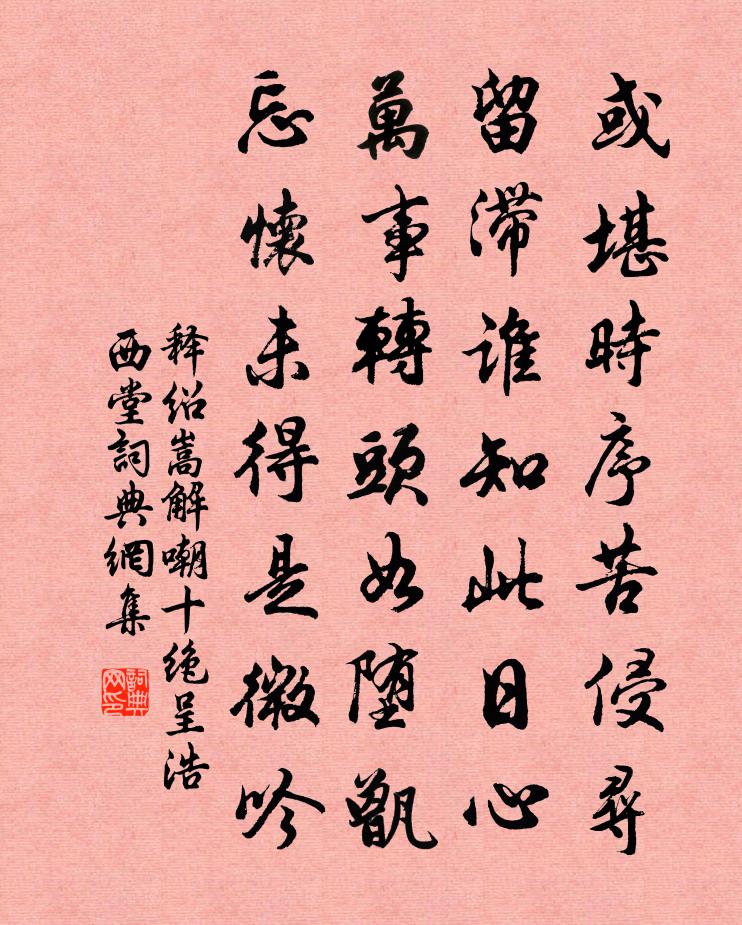 或堪時序苦侵尋
留滯谁知此日心
萬事轉頭如堕甑
忘懷未得是微吟
释绍嵩解嘲十绝呈浩
西堂詞典網集
詞典
网印